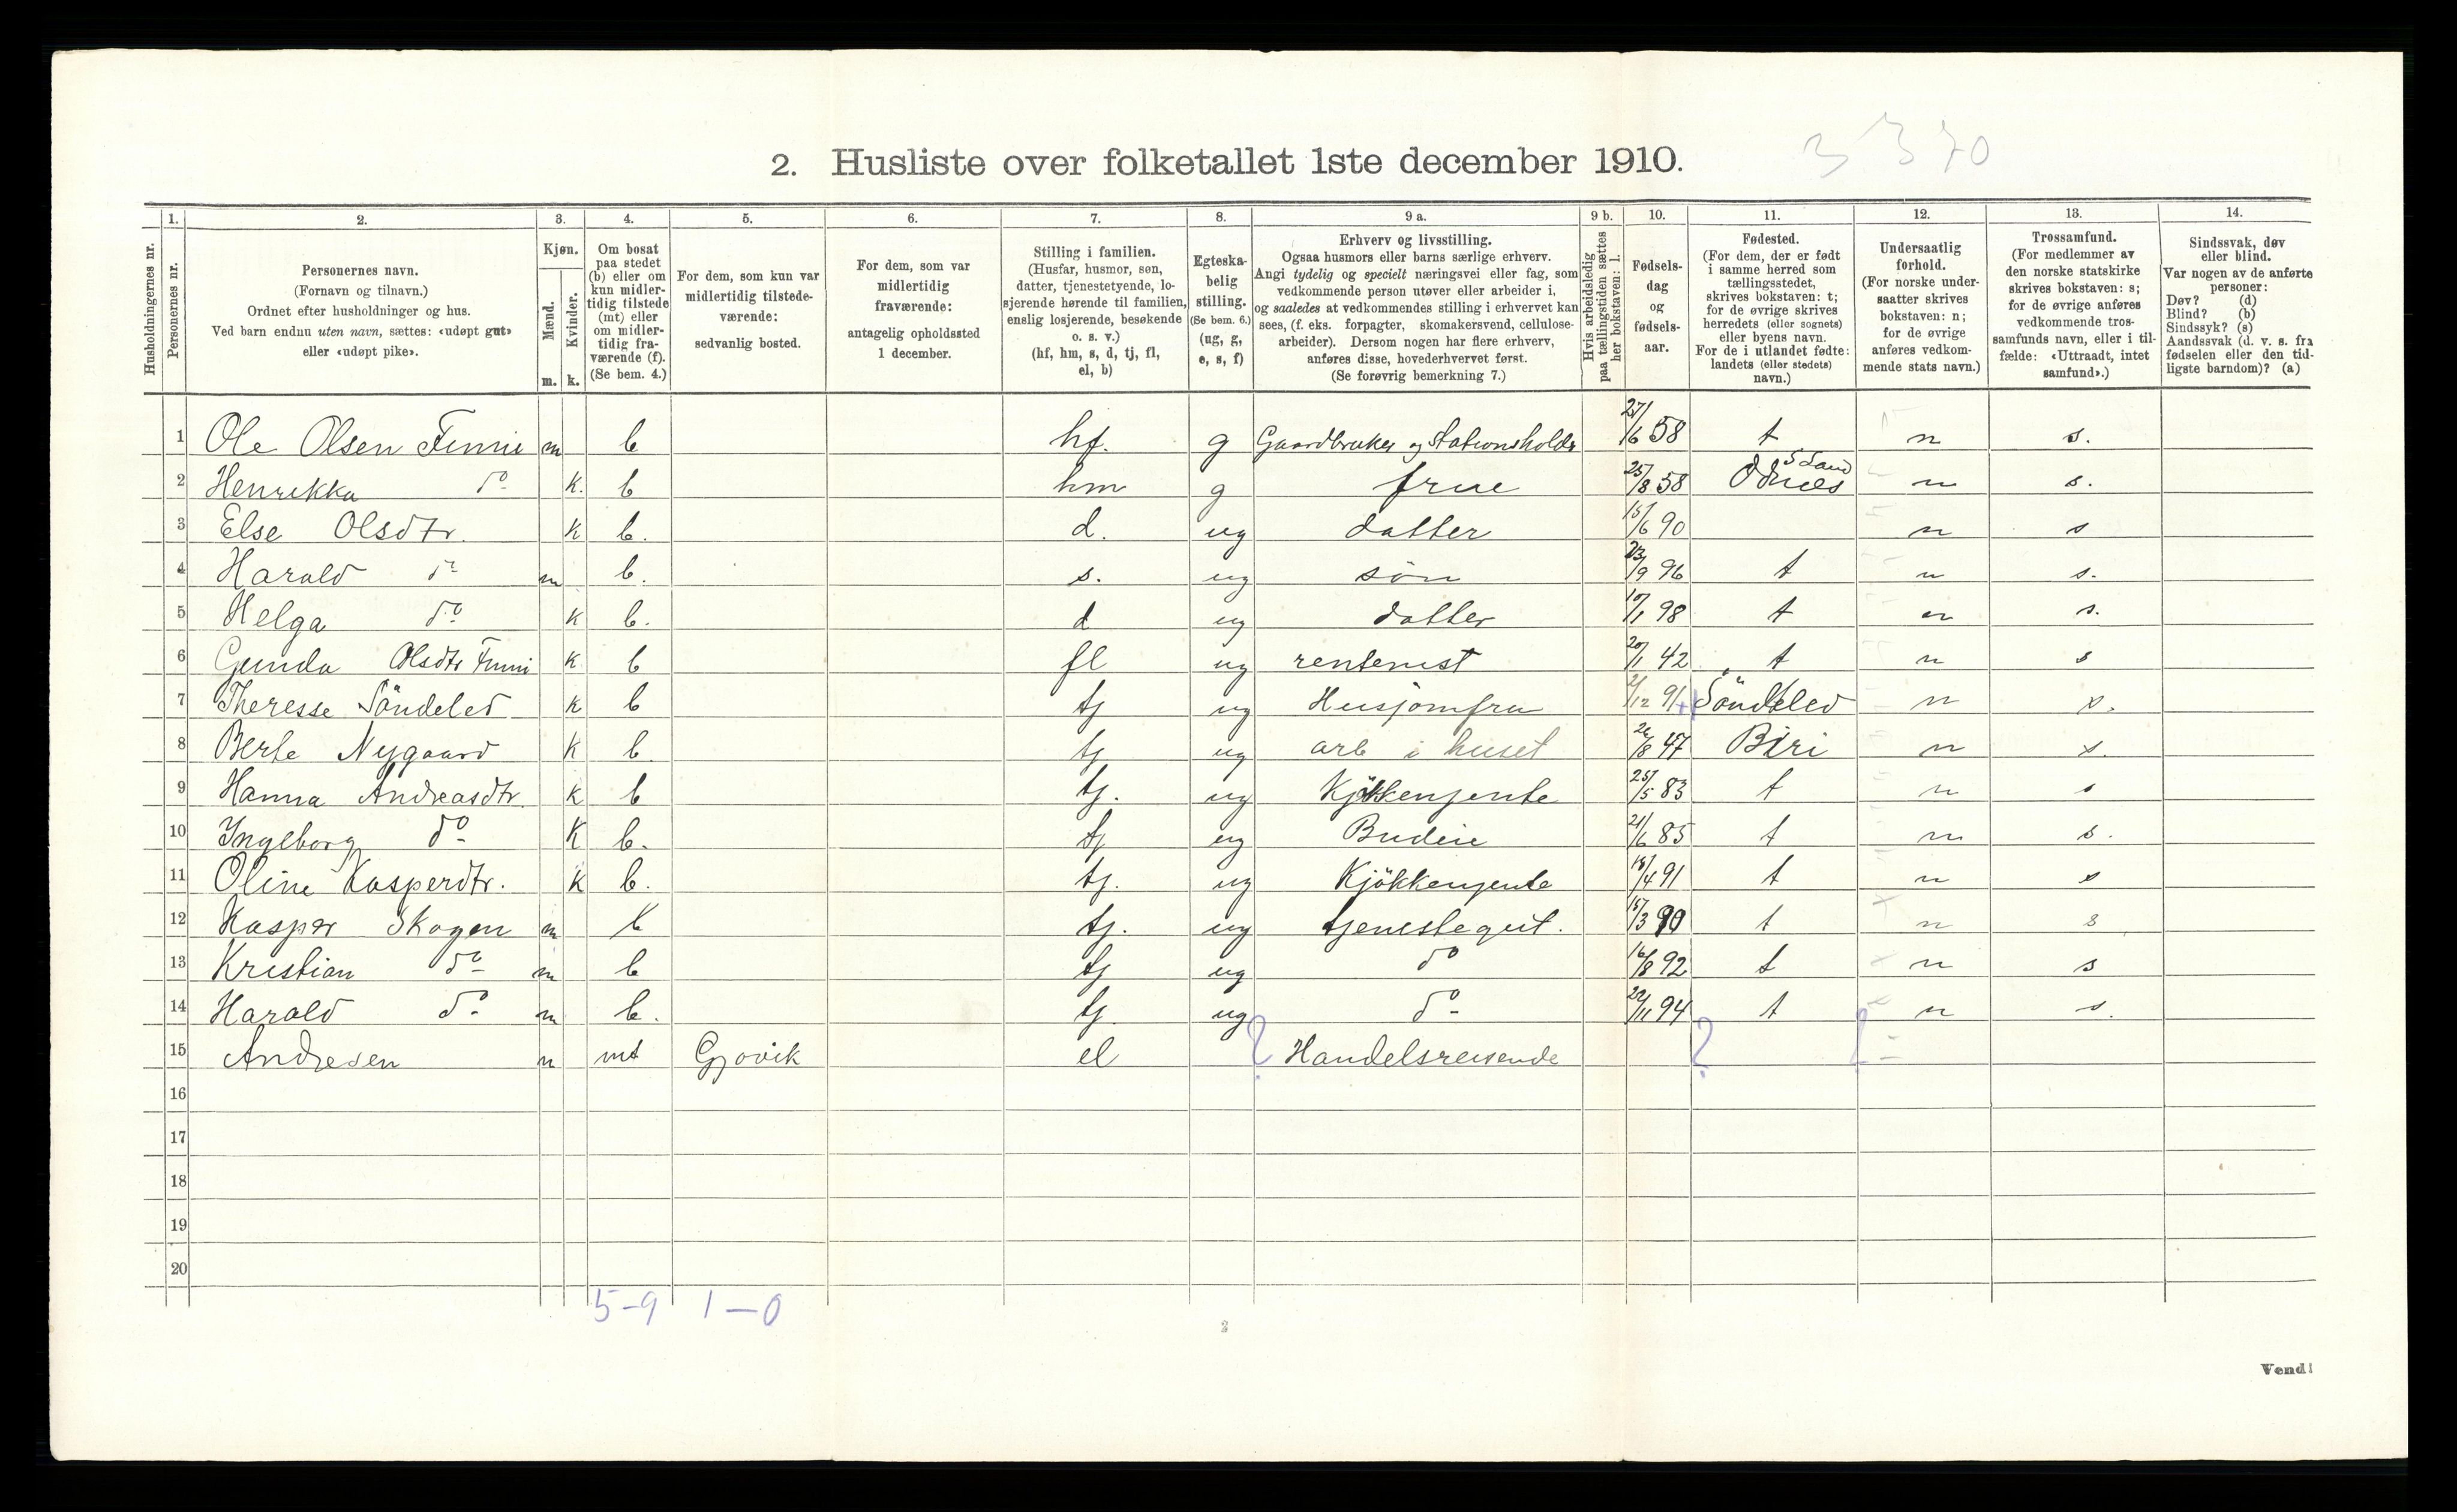 3 3 70
2. Husliste over folketallet 1ste december 1910.
1. 2. 3. 4. 5. 6. 7. 8. 9 a. 9 b. 10. 11. 12. 13. 14.
Husholdningernes nr.
Personernes nr.
Personernes navn.
(Fornavn og tilnavn.)
Ordnet efter husholdninger og hus.
Ved barn endnu uten navn, sættes: «udøpt gut»
eller «udøpt pike».
Kjøn.
Mænd.
Kvinder.
m. k.
Om bosat
paa stedet
(b) eller om
kun midler-
tidig tilstede
(mt) eller
om midler-
tidig fra-
værende (f).
(Se bem. 4.)
For dem, som kun var
midlertidig tilstede-
værende:
sedvanlig bosted.
For dem, som var
midlertidig
fraværende:
antagelig opholdssted
1 december.
Stilling i familien.
(Husfar, husmor, søn,
datter, tjenestetyende, lo-
sjerende hørende til familien,
enslig losjerende, besøkende
o. s. v.)
(hf, hm, s, d, tj, fl,
el, b)
Egteska-
belig
stilling.
(Se bem. 6.)
(ug, g,
e, s, f)
Erhverv og livsstilling.
Ogsaa husmors eller barns særlige erhverv.
Angi tydelig og specielt næringsvei eller fag, som
vedkommende person utøver eller arbeider i,
og saaledes at vedkommendes stilling i erhvervet kan
sees, (f. eks. forpagter, skomakersvend, cellulose-
arbeider). Dersom nogen har flere erhverv,
anføres disse, hovederhvervet først.
(Se forøvrig bemerkning 7.)
Hvis arbeidsledig
paa tællingstiden sættes
her bokstaven: l.
Fødsels-
dag
og
fødsels-
aar.
Fødested.
(For dem, der er født
i samme herred som
tællingsstedet,
skrives bokstaven: t;
for de øvrige skrives
herredets (eller sognets)
eller byens navn.
For de i utlandet fødte:
landets (eller stedets)
navn.)
Undersaatlig
forhold.
(For norske under-
saatter skrives
bokstaven: n;
for de øvrige
anføres vedkom-
mende stats navn.)
Trossamfund.
(For medlemmer av
den norske statskirke
skrives bokstaven: s;
for de øvrige anføres
vedkommende tros-
samfunds navn, eller i til-
fælde: «Uttraadt, intet
samfund».)
Sindssvak, døv
eller blind.
Var nogen av de anførte
personer:
Døv? (d)
Blind? (b)
Sindssyk? (s)
Aandssvak (d. v. s. fra
fødselen eller den tid-
ligste barndom)? (a)
1 Ole Olsen Finni m b hf. g Gaardbruker og Stationsholder 27/6 58 t n s.
2 Henrikka do k. b hm g frue 25/8 58 Odnes S Land n s.
3 Else Olsdtr. k b. d. ug datter 15/6 90 n s
4 Harald do m b. s. ug sön 23/9 96 t n s.
5 Helga do k b. d ug datter 10/1 98 t n s.
6 Gunda Olsdtr Finni k b fl ug rentenist 20/1 42 t n s
7 Theresse Söndeled k b tj ug Husjomfru 2/12 91 Söndeled n s.
8 Berte Nygaard k b tj ug arb i huset 26/8 47 Biri n s.
9 Hanna Andreasdtr. k b tj. ug Kjøkkenjente 25/5 83 t n s
10 Ingeborg do k b. tj ug Budeie 21/6 85 t n s.
11 Oline Kasperdtr. k b. tj. ug Kjökkenjente 18/4 91 t n s
12 Kasper Skogen m b tj. ug tjenestegut. 15/3 90 t n s
13 Kristian do m b tj ug do 16/8 92 t n s
14 Harald do m b. tj ug do 22/11 94 t n s.
15 Andresen m mt Gjøvik el ? Handelsreisende ? ?
16
17
18
19
20
5-9 1-0
2
Vend!